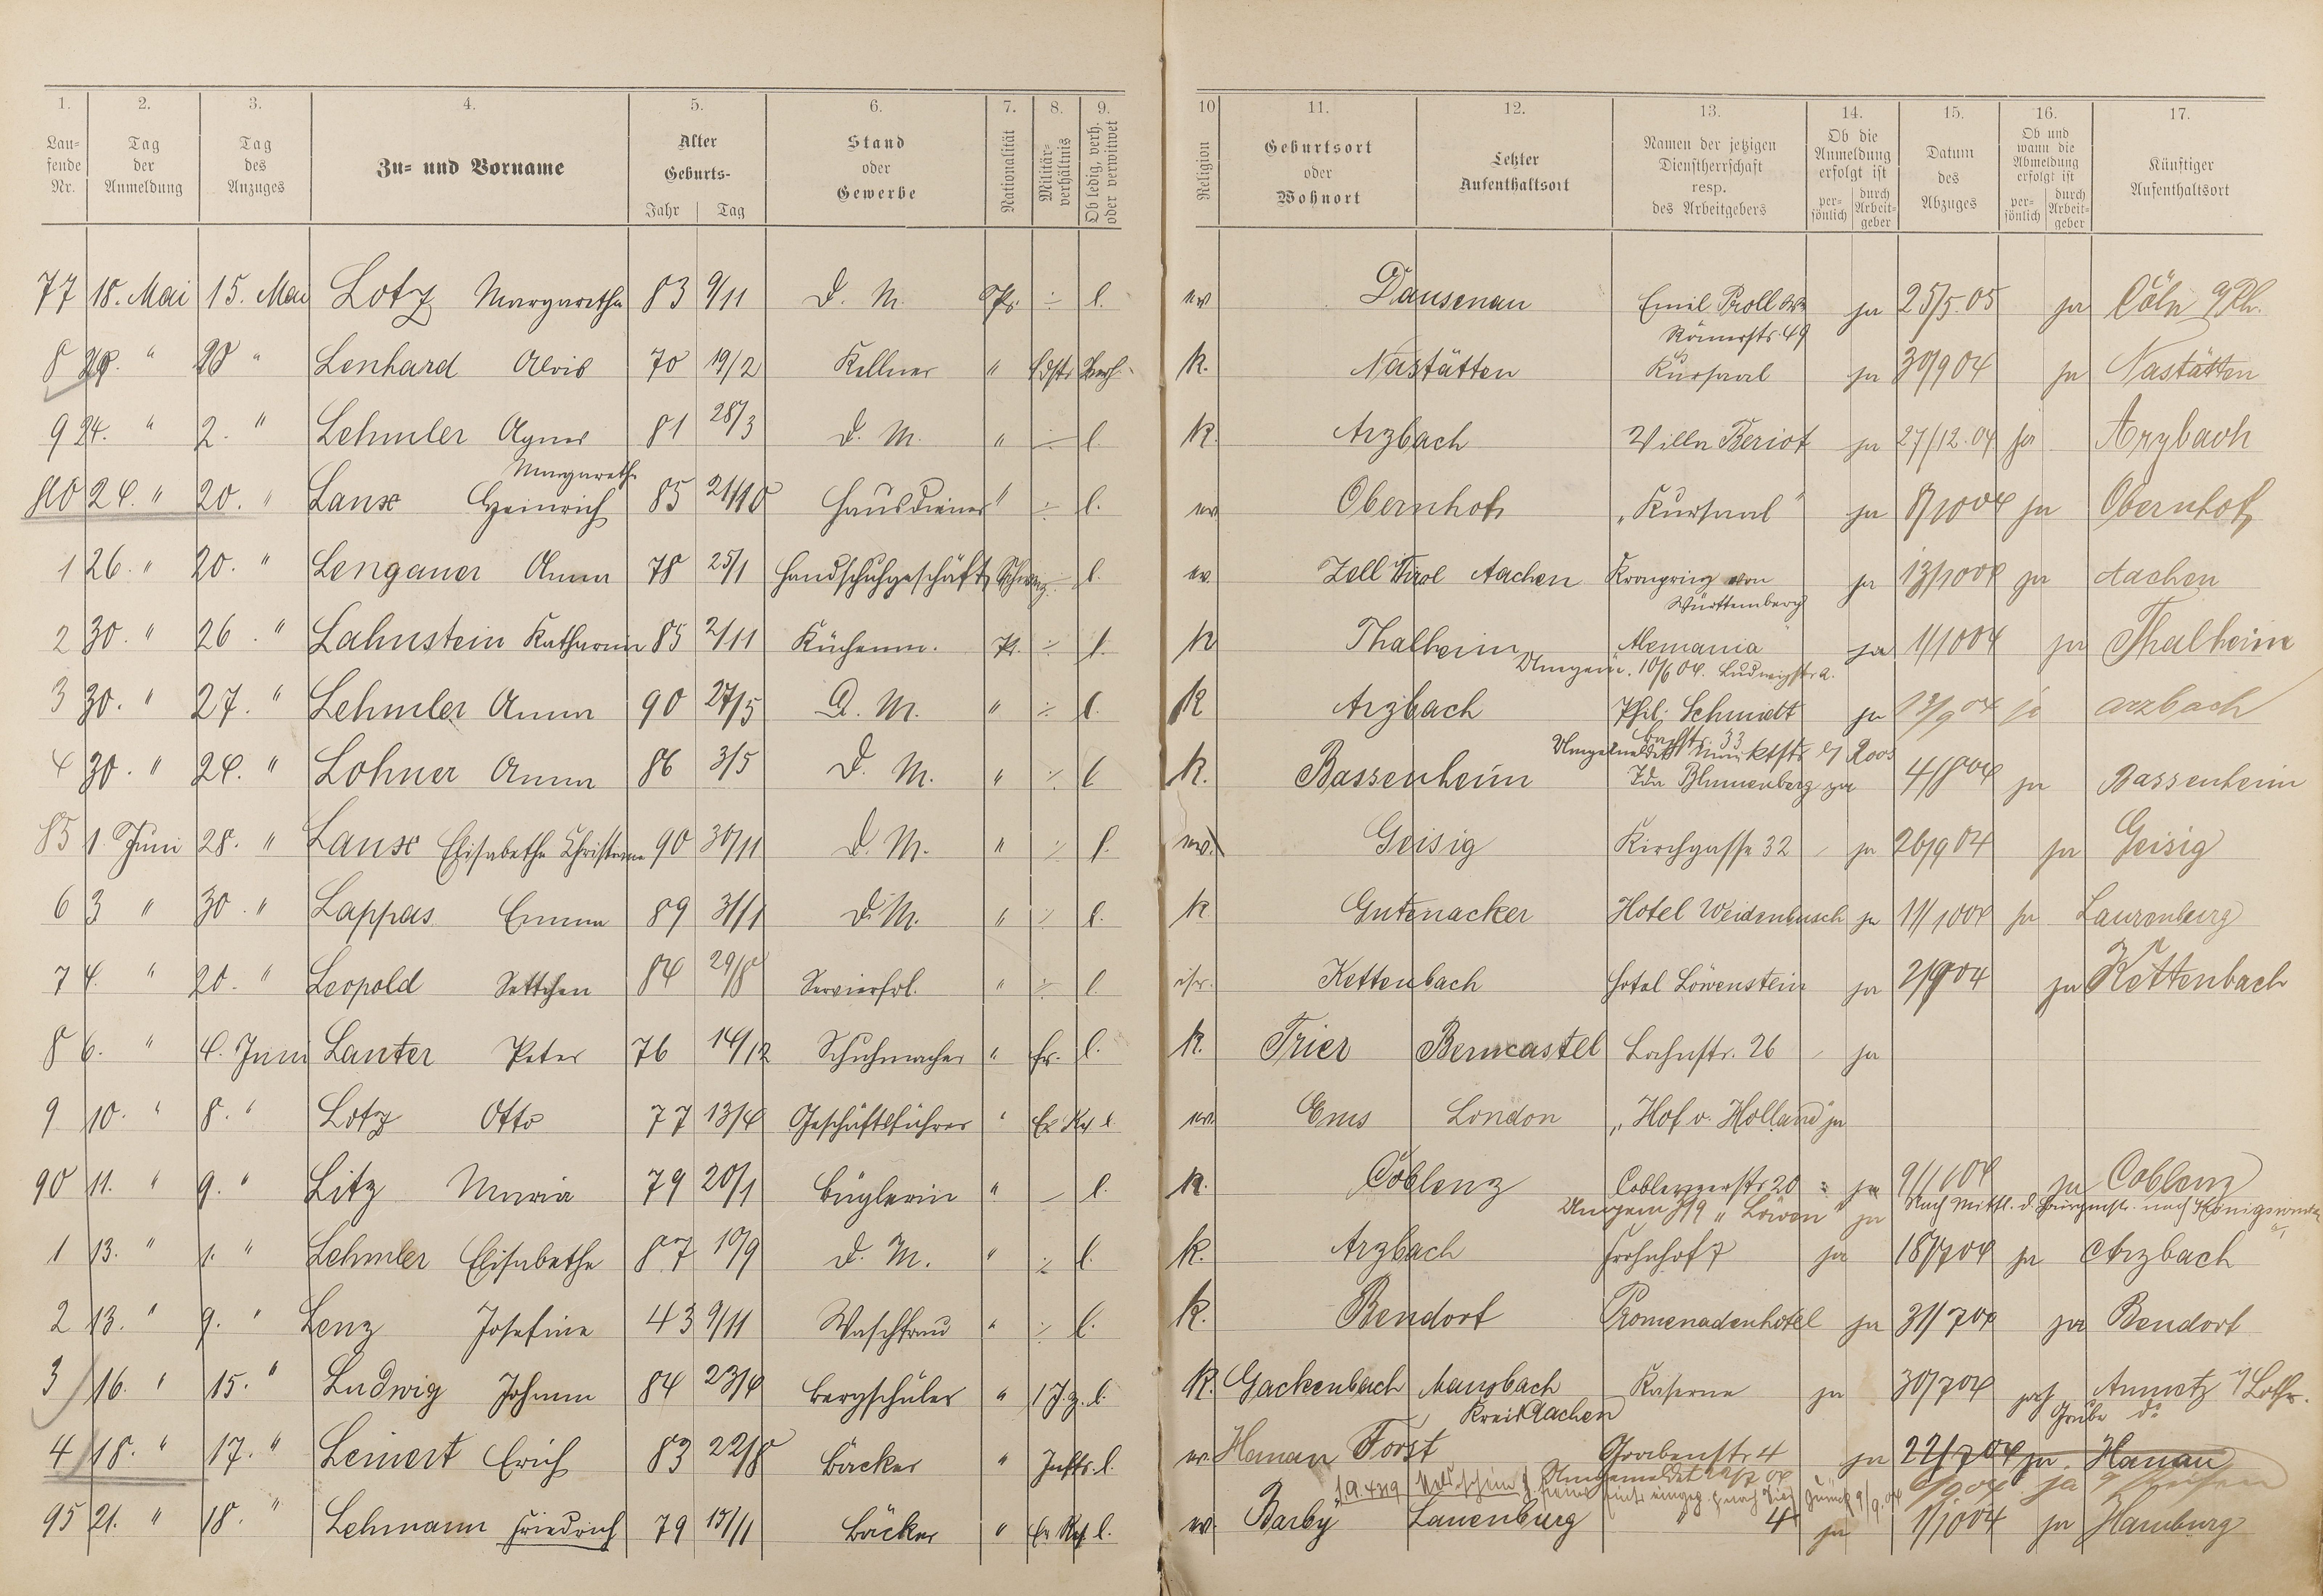 1. 2. 3. 4. 5. 6. 7. 8. 9. 10 11. 12. 13. 14. 15. 16. 17.
Lau- fende Nr. Tag der Anmeldung Tag des Anzuges Zu- und Vorname Alter Geburts- Jahr Tag Stand oder Gewerbe Nationalität Militär- verhältnis Ob ledig, verh. oder verwitwet Religion Geburtsort oder Wohnort Letzter Aufenthaltsort Namen der jetzigen Dienstherrschaft resp. des Arbeitgebers Ob die Anmeldung erfolgt ist per- sönlich durch Arbeit- geber Datum des Abzuges Ob und wann die Abmeldung erfolgt ist per- sönlich durch Arbeit- geber Künftiger Aufenthaltsort
77 18. Mai 15. Mai Lotz Margarethe 83 9/11 D. M. Pr. ÷ l. ev Dausenau Emil Proll Ww ja 25/5.05 ja Cöln a/Rh.
Römerstr. 49
8 " 20 " Lenhard Alois 70 19/2 Kellner " Ldst. Verh. K. Nastätten Kursaal ja 30/9 04 ja Nastätten
9 24. " 2. " Lehmler Agnes 81 28/3 D. M. " ÷ l. K. Arzbach Villa Beriot ja 27/12.04 ja Arzbach
Margarethe
80 24. " 20. " Laux Heinrich 85 21/10 Hausdiener " ÷ l. ev Obernhof "Kursaal" ja 8/10 04 ja Obernhof
1 26. " 20. " Lengauer Anna 78 25/1 Handschuhgeschäft l. ev. Zell Tirol Aachen Kronprinz von ja 13/10 04 ja Aachen
Württemberg
2 30. " 26. " Lahnstein Katharina 85 2/11 Küchenm. Pr. ÷ l. K Thalheim Alemania ja 1/10 04 ja Thalheim
Umgem. 10/6 04. Ludwigstr
3 30. " 27. " Lehmler Anna 90 27/5 D. M. " ÷ l. K Arzbach Phil. Schmidt ja 13/9 04 ja Arzbach
Bachstr. 33
Umgemeldet
4 30. " 24. " Lohner Anna 86 3/5 D. M. " ÷ l K. Bassenheim Ida Blumenberg ja 4/8 04 ja Bassenheim
85 1. Juni 28. " Laux Elisabethe Christine 90 30/11 D. M. " ÷ l. ev. Geisig Kirchgasse 32 ja 26/9 04 ja Geisig
6 3 " 30. " Lappas Emma 89 31/1 D. M. " ÷ l. K Gutenacker Hotel Weidenbusch ja 11/10 04 ja Laurenburg
7 4. " 20. " Leopold Settchen 84 29/8 Servierfrl. " ÷ l. isr. Kettenbach Hotel Löwenstein ja 2/9 04 ja Kettenbach
8 6. " 4. Juni Lanter Peter 76 14/12 Schuhmacher " Er. l. K. Trier Berncastel Lahnstr. 26 ja
9 10. " 8. " Lotz Otto 77 13/4 Geschäftsführer " Er Res l ev. Ems London "Hof v. Holland" ja
90 11. " 9. " Litz Maria 79 20/1 Büglerin " l. K. Coblenz Coblenzerstr 20 ja 9/11 04 ja Coblenz
Umgem "Löwen" ja Nach Mittl. d. Bürgmstr. nach Königswinter
1 13. " 1. " Lehmler Elisabethe 87 10/9 D. M. " ÷ l. K. Arzbach Frohnhof 7 ja 18/7 04 ja Arzbach
2 13. " 9. " Lenz Josefine 43 9/11 Waschfrau " ÷ l. K. Bendorf Promenadenhotel ja 31/7 04 ja Bendorf
3 16. " 15. " Ludwig Johann 84 23/4 Bergschüler " 1 J. z. l. K. Gackenbach Mausbach Kaserne ja 30/7 04 Aumetz i/Lothr.
Kreis Aachen Grube do
4 18. " 17. " Leinert Erich 83 22/8 Bäcker " l. ev. Forst Grabenstr 4 ja 22/7 04 ja Hanau
Umgemeldet 22/7 04 ja
95 21. " 18. " Lehmann Friedrich 79 15/11 Bäcker " Er Res l. ev. Barby Lauenburg " 4 ja 1/10 04 ja Hamburg